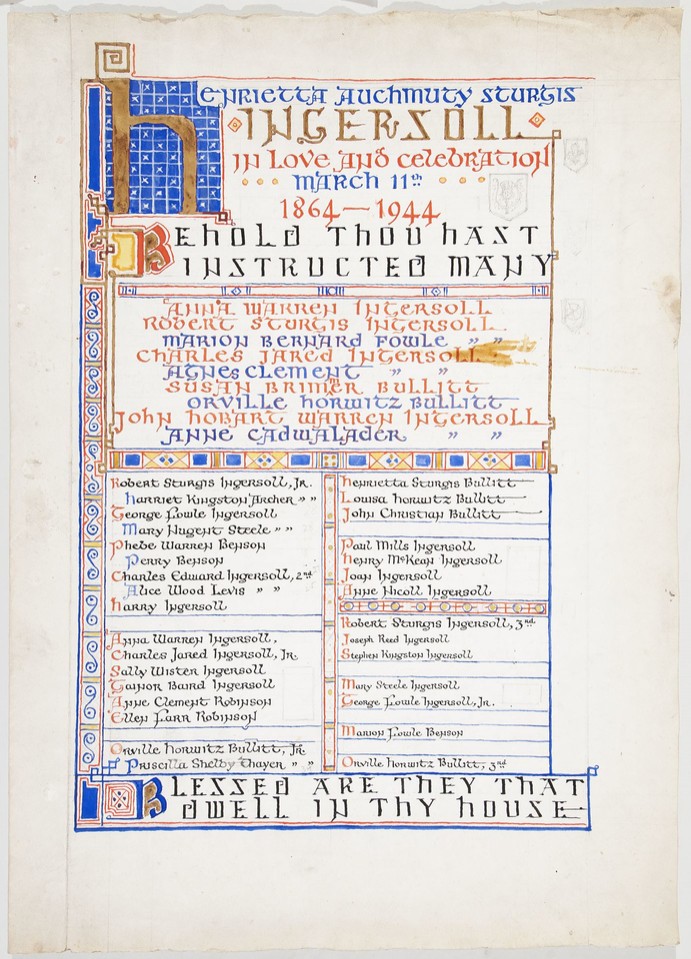 Henrietta Auchmuty Sturgis
INGERSOLL
IN LOVE AND CELEBRATION
MARCH 11th
1864—1944
BEHOLD THOU HAST
INSTRUCTED MANY
ANNA WARREN INGERSOLL
ROBERT STURGIS INGERSOLL
MARION BERNARD FOWLE " "
CHARLES JARED INGERSOLL
AGNES CLEMENT " "
SUSAN BRIMER BULLITT
ORVILLE HORWITZ BULLITT
JOHN HOBART WARREN INGERSOLL
ANNE CADWALADER " "
Robert Sturgis Ingersoll, Jr.
Harriet Kingston Archer " "
George Fowle Ingersoll
Mary Nugent Steele " "
Phebe Warren Benson
Perry Benson
Charles Edward Ingersoll, 2nd
Alice Wood Levis " "
Harry Ingersoll
Anna Warren Ingersoll,
Charles Jared Ingersoll, Jr.
Sally Wister Ingersoll
Gainor Baird Ingersoll
Anne Clement Robinson
Ellen Farr Robinson
Orville Horwitz Bullitt, Jr.
Priscilla Shelby Thayer " "
Henrietta Sturgis Bullitt
Louisa Horwitz Bullitt
John Christian Bullitt
Paul Mills Ingersoll
Henry McKean Ingersoll
Joan Ingersoll
Anne Nicoll Ingersoll
Robert Sturgis Ingersoll, 3rd
Joseph Reed Ingersoll
Stephen Kingston Ingersoll
Mary Steele Ingersoll
George Fowle Ingersoll, Jr.
Marion Fowle Benson
Orville Horwitz Bullitt, 3rd
BLESSED ARE THEY THAT
DWELL IN THY HOUSE